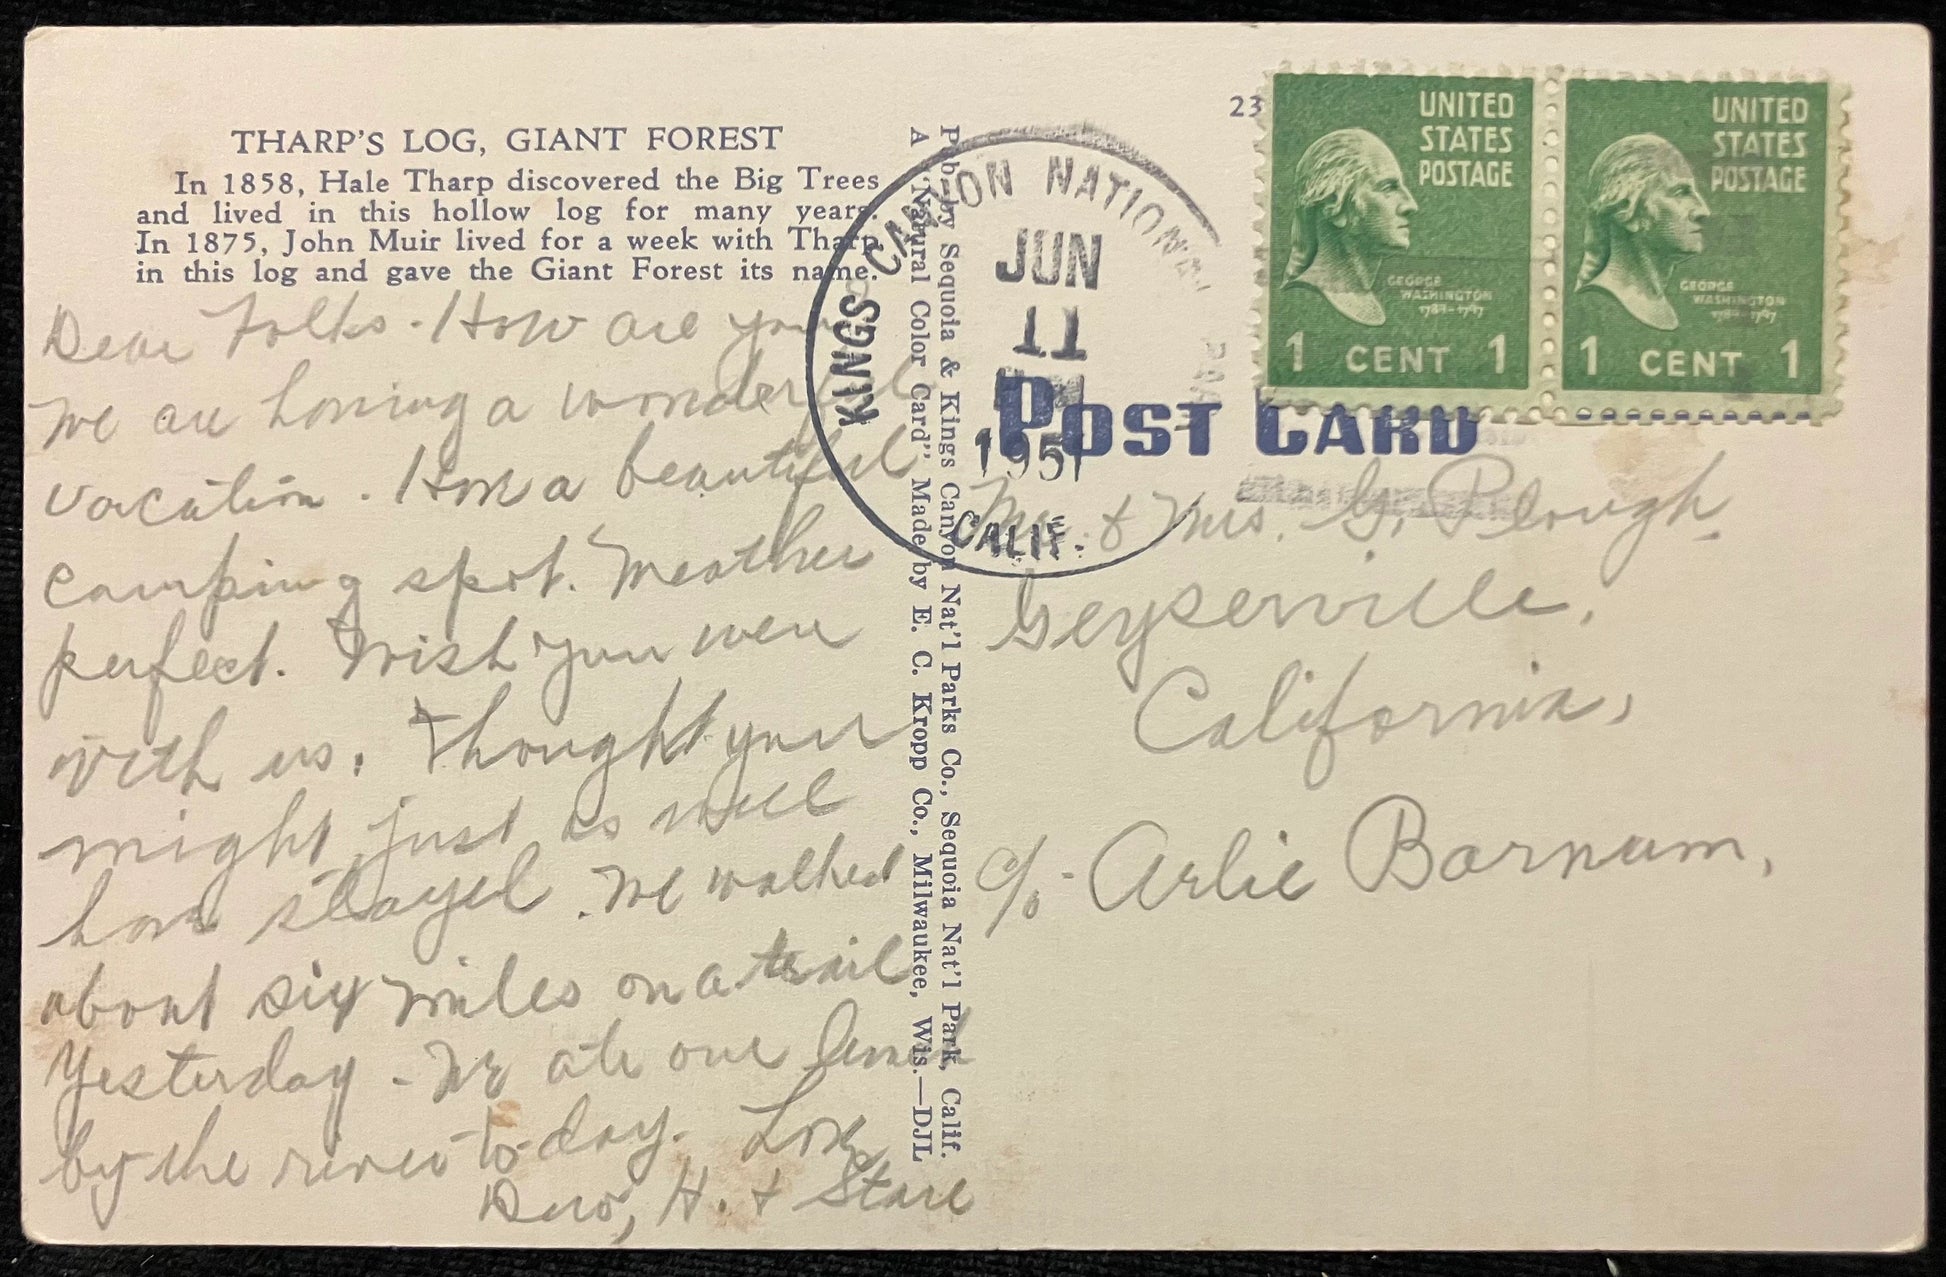 THARP'S LOG, GIANT FOREST
In 1858, Hale Tharp discovered the Big Trees
and lived in this hollow log for many years.
In 1875, John Muir lived for a week with Tharp
in this log and gave the Giant Forest its name.
Dear Folks - How are you
We are having a wonderful
vacation. Have a beautiful
camping spot. Weather
perfect. Wish you were
with us. Thought you
might just as well
have stayed. We walked
about six miles on a trail
yesterday - We ate our lunch
by the river to-day. Love
H. &
Pub. by Sequoia & Kings Canyon Nat'l Parks Co., Sequoia Nat'l Park, Calif.
A "Natural Color Card" Made by E. C. Kropp Co., Milwaukee, Wis.—DJL
KINGS CANYON NATIONAL PARK
JUN
11
1951
CALIF.
23
UNITED
STATES
POSTAGE
GEORGE
WASHINGTON
1789-1797
1 CENT 1
UNITED
STATES
POSTAGE
GEORGE
WASHINGTON
1789-1797
1 CENT 1
POST CARD
Mr. & Mrs. G. Plough
Geyserville,
California,
c/o - Arlie Barnum,